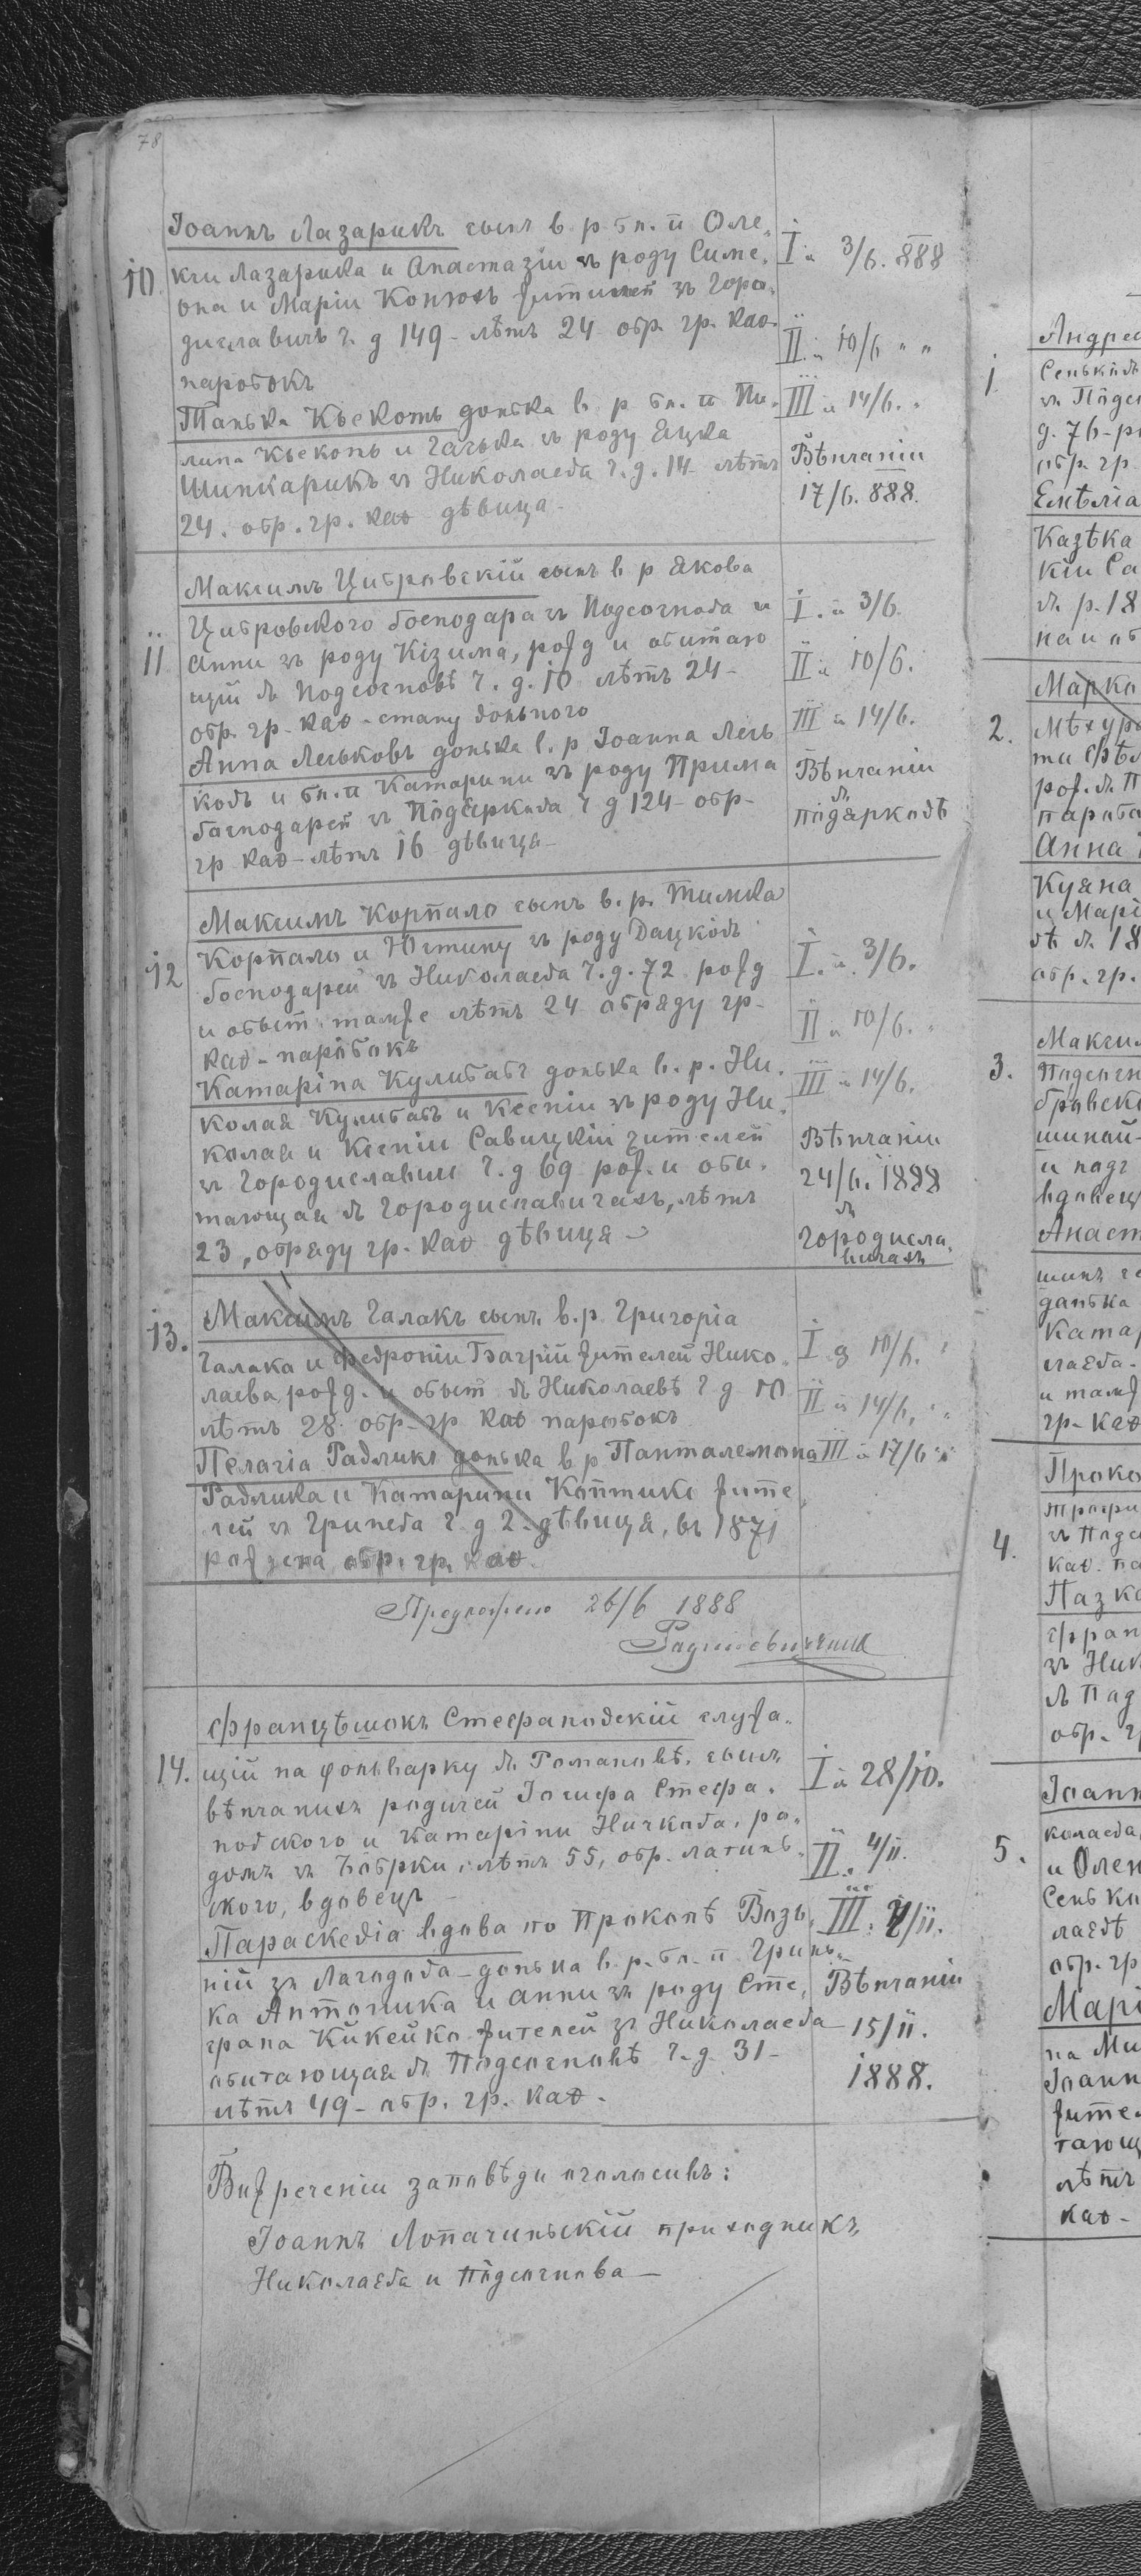 78
Іоаннъ Лазарикъ сынъ в. р. бл. п. Оле,
10. кси Лазарика и Анастазіи зъ роду Симе,
она и Маріи Конюхъ жителей зъ Горо,
диславичъ ч. д 149 - лѣтъ 24 обр. гр. каѳ.
паробокъ
Танька Кьсконъ донька в. р. бл. п. Пи,
липа Кьсконъ и Гаська зъ роду Яцка
Шипкарикъ зъ Николаева ч. д. 14 лѣтъ
24. обр. гр. каѳ дѣвица -
I й 3/6. 888
II й 10/6 " "
III й 14/6. "
Вѣнчаніи
17/6. 888.
Максимъ Цибровскій сынъ в. р Якова
11 Цибровского господара зъ Подсоснова и
Анни зъ роду Кізима, рожд и обитаю
щій въ Подсосновѣ ч. д. 10 лѣтъ 24 -
обр. гр. каѳ - стану вольного
Анна Леськовъ донька в. р Іоанна Лесь
ковъ и бл. п Катарини зъ роду Прима
господарей зъ Підяркова ч д 124 - обр -
гр каѳ - лѣтъ 16 дѣвица -
I. й 3/6.
II й 10/6.
III й 14/6.
Вѣнчаніи
въ
підярковѣ
Максимъ Корпало сынъ в. р. Тимка
12 Корпало и Юстину зъ роду Дацковъ
господарей зъ Николаева ч. д. 72 рожд
и обыт. тамже лѣтъ 24 обряду гр -
каѳ - паробокъ
Катаріна Кулибабъ донька в. р. Ни,
колая Кулибабъ и Ксеніи зъ роду Ни,
колая и Ксеніи Савицкіи жителей
зъ Городиславич ч. д 69 рож. и оби,
тающая въ Городиславичахъ, лѣтъ
23, обряду гр. каѳ дѣвица -
I. й. 3/6.
II й 10/6. "
III й 14/6.
Вѣнчаніи
24/6. 1888
въ
Городисла,
вичахъ
13. Максимъ Галакъ сынъ в. р. Григорія
Галака и Федроніи Багрій жителей Нико,
лаева, рожд. и обыт въ Николаевѣ ч д 10
лѣтъ 28 обр - гр каѳ паробокъ
Пелагіа Радлико донька в р Панталемона
Радлика и Катарини Коптико жите
лей зъ Гринева ч. д 2 - дѣвица, въ 1871
рождена обр. гр. каѳ.
I й 10/6. "
II й 14/6, "
III й 17/6 "
Предложено 26/6 1888
Францѣшокъ Стефановскій служа,
14. щій на фольварку въ Романовѣ. сынъ
вѣнчанихъ родичей Іосифа Стефа,
новского и Катаріни Ничкова, ро,
домъ зъ Бобрки, лѣтъ 55, обр. латинь,
ского, вдовецъ -
Параскевіа вдова по Прокопѣ Возь,
ній зъ Лагодова - донька в. р. бл. п. Гринь,
ка Антоника и Анни зъ роду Сте,
фана Кикейко жителей зъ Николаева
обитающая въ Подсосновѣ ч. д. 31 -
лѣтъ 49 - обр. гр. каѳ -
I й 28/10.
II. 4/11.
III. 11/11.
Вѣнчаніи
15/11.
1888.
Вижреченіи заповѣди оголосивъ:
Іоаннъ Лопачиньскій приходникъ
Николаева и Підсоснова -
Андрей
1. Сеньковъ
д. 76 -
обр. гр
Емѣліа
Казѣка
кіи Са
въ р. 18
на и об
Марко
2.
Анна
Куяна
и Марі
обр. гр.
Макси
3. Подсосн
вдовецъ
Анаст
донька
Катар
и тамж
гр - каѳ
Проко
4.
каѳ. па
Пазко
зъ Ник
обр. гр
Іоанн
5. колаева
и Олен
Сенько
лаевѣ
обр. гр
Марі
на Ми
Іоанн
жител
тающ
лѣтъ
каѳ -